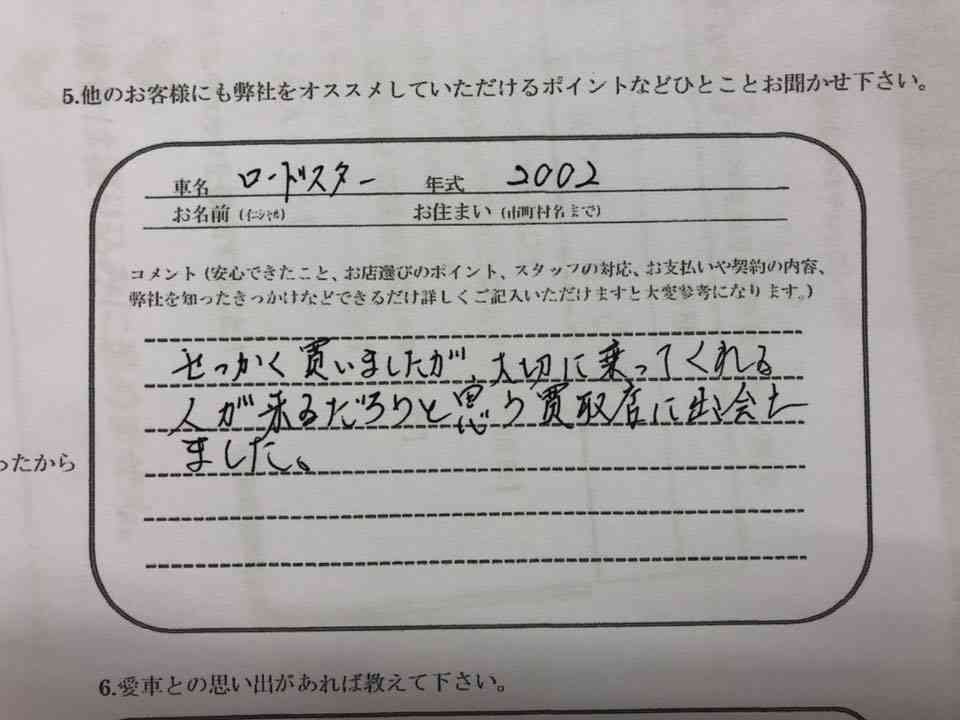 5.他のお客様にも弊社をオススメしていただけるポイントなどひとことお聞かせ下さい。
車名 ロードスター 年式 2002
お名前(イニシャル) お住まい(市町村名まで)
コメント(安心できたこと、お店選びのポイント、スタッフの対応、お支払いや契約の内容、
弊社を知ったきっかけなどできるだけ詳しくご記入いただけますと大変参考になります。)
せっかく買いましたが、大切に乗ってくれる
人が来るだろうと思う買取店に出会え
ました。
ったから
6.愛車との思い出があれば教えて下さい。